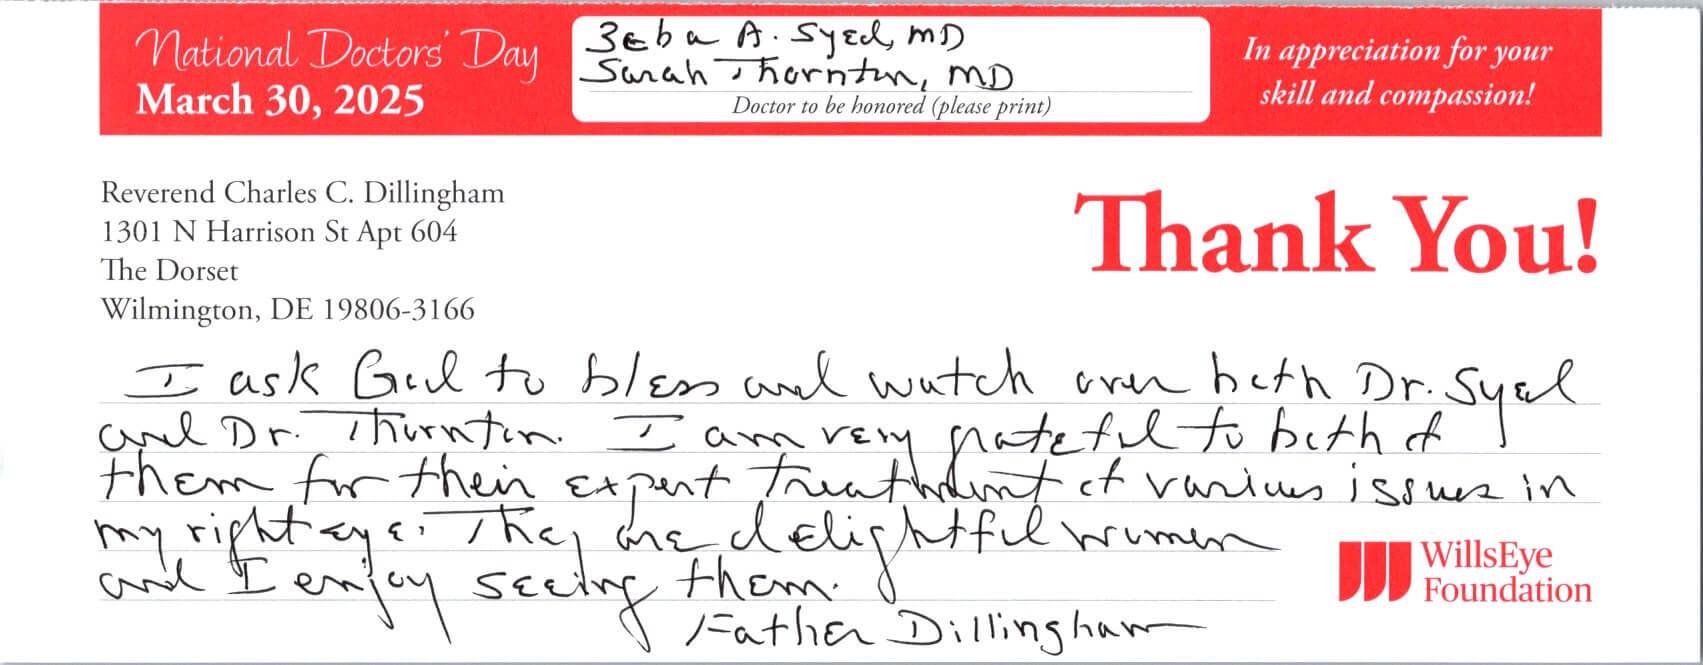 National Doctors' Day
March 30, 2025
Zeba A. Syed, MD
Sarah Thornton, MD
Doctor to be honored (please print)
In appreciation for your
skill and compassion!
Reverend Charles C. Dillingham
1301 N Harrison St Apt 604
The Dorset
Wilmington, DE 19806-3166
Thank You!
I ask God to bless and watch over both Dr. Syed
and Dr. Thornton. I am very grateful to both of
them for their expert treatment of various issues in
my right eye. They are delightful women
and I enjoy seeing them.
Father Dillingham
WillsEye
Foundation